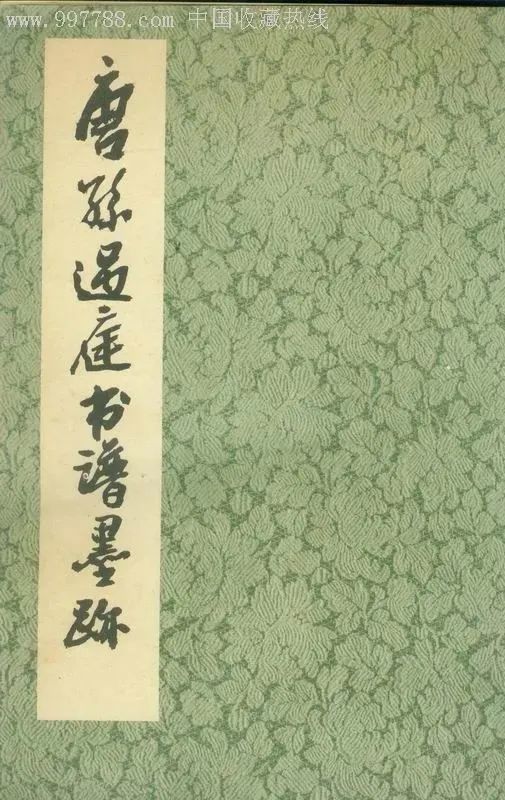 www.997788.com 中国收藏热线
唐孫過庭书譜墨跡